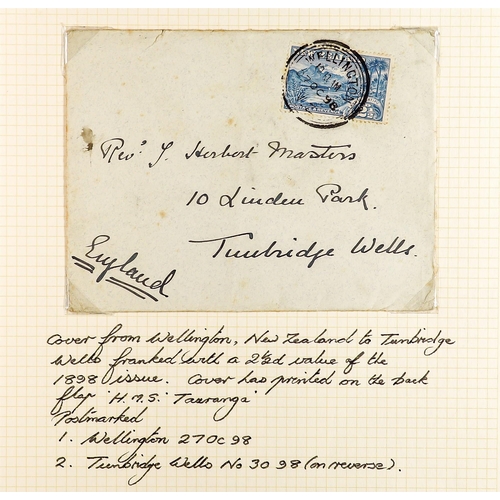 WELLINGTON
OC 98
Rev.d J. Herbert-Masters
10 Linden Park.
Tunbridge Wells.
England
Cover from Wellington, New Zealand to Tunbridge
Wells franked with a 2½d value of the
1898 issue. Cover has printed on the back
flap 'H.M.S. Tauranga'
Postmarked
1. Wellington 27 OC 98
2. Tunbridge Wells No 30 98 (on reverse).